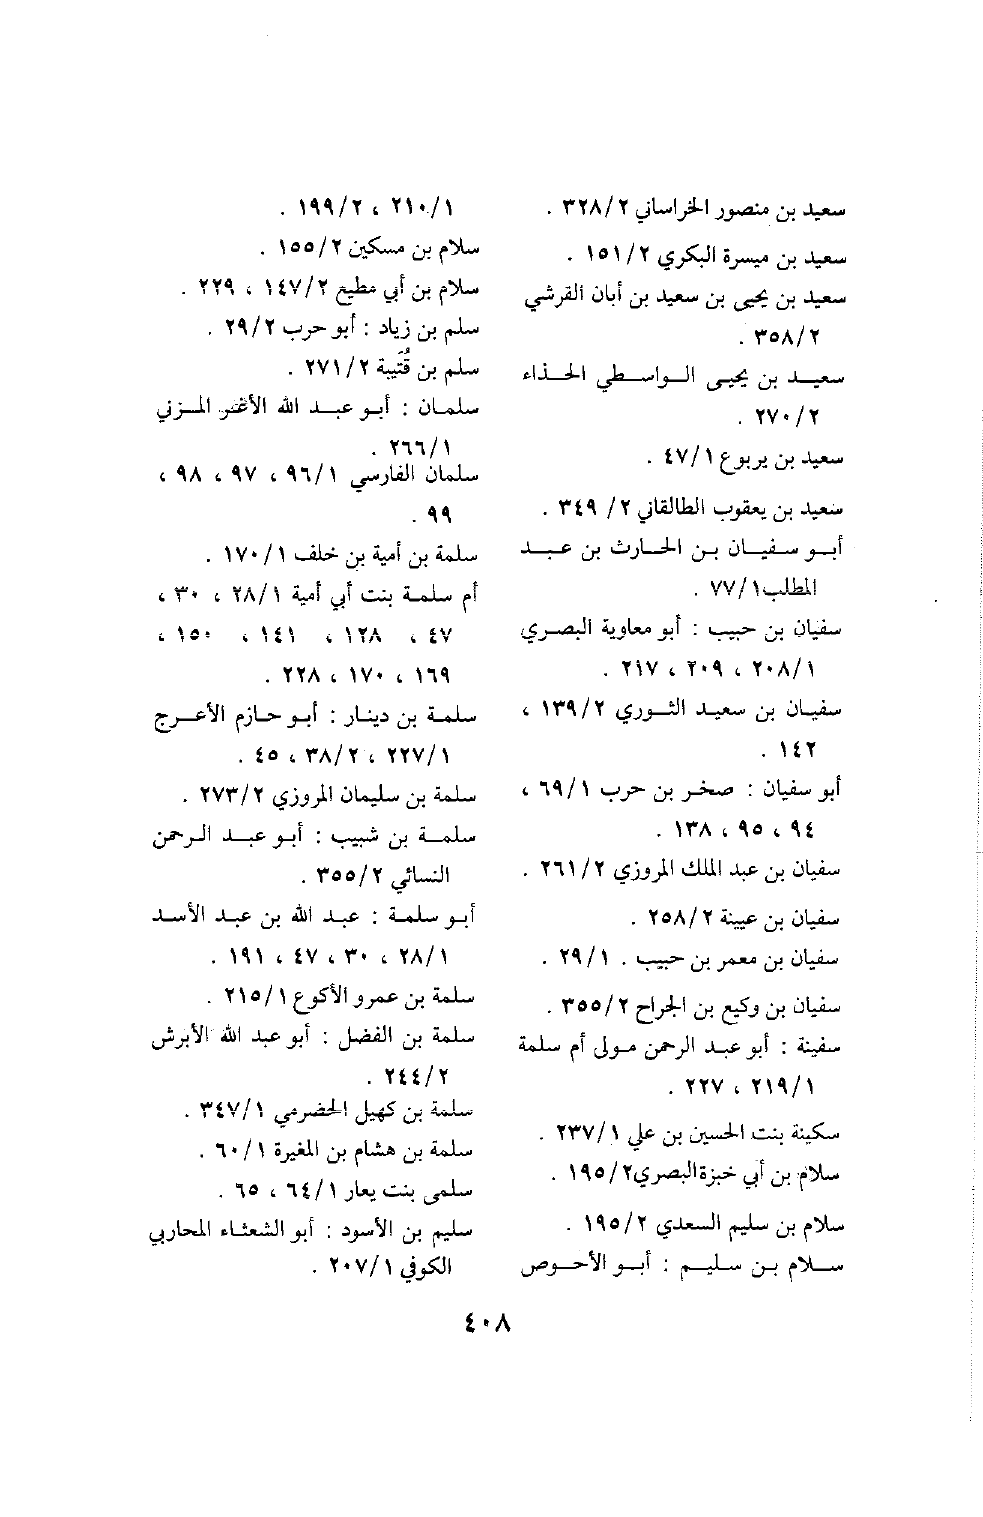 سعيد بن منصور الخراساني ٣٢٨/٢ .
سعيد بن ميسرة البكري ١٥١/٢ .
سعيد بن يحيى بن سعيد بن أبان القرشي
٣٥٨/٢ .
سعيد بن يحيى الواسطي الحذاء
٢٧٠/٢ .
سعيد بن يربوع ٤٧/١ .
سعيد بن يعقوب الطالقاني ٢/ ٣٤٩ .
أبو سفيان بن الحارث بن عبد
المطلب ٧٧/١ .
سفيان بن حبيب : أبو معاوية البصري
٢٠٨/١ ، ٢٠٩ ، ٢١٧ .
سفيان بن سعيد الثوري ١٣٩/٢ ،
١٤٢ .
أبو سفيان : صخر بن حرب ٦٩/١ ،
٩٤ ، ٩٥ ، ١٣٨ .
سفيان بن عبد الملك المروزي ٢٦١/٢ .
سفيان بن عيينة ٢٥٨/٢ .
سفيان بن معمر بن حبيب . ٢٩/١ .
سفيان بن وكيع بن الجراح ٣٥٥/٢ .
سفينة : أبو عبد الرحمن مولى أم سلمة
٢١٩/١ ، ٢٢٧ .
سكينة بنت الحسين بن علي ٢٣٧/١ .
سلام بن أبي خبزة البصري ١٩٥/٢ .
سلام بن سليم السعدي ١٩٥/٢ .
سلام بن سليم : أبو الأحوص
٢١٠/١ ، ١٩٩/٢ .
سلام بن مسكين ١٥٥/٢ .
سلام بن أبي مطيع ١٤٧/٢ ، ٢٢٩ .
سلم بن زياد : أبو حرب ٢٩/٢ .
سلم بن قُتَيبة ٢٧١/٢ .
سلمان : أبو عبد الله الأغر المزني
٢٦٦/١ .
سلمان الفارسي ٩٦/١ ، ٩٧ ، ٩٨ ،
٩٩ .
سلمة بن أمية بن خلف ١٧٠/١ .
أم سلمة بنت أبي أمية ٢٨/١ ، ٣٠ ،
٤٧ ، ١٢٨ ، ١٤١ ، ١٥٠ ،
١٦٩ ، ١٧٠ ، ٢٢٨ .
سلمة بن دينار : أبو حازم الأعرج
٢٢٧/١ ، ٣٨/٢ ، ٤٥ .
سلمة بن سليمان المروزي ٢٧٣/٢ .
سلمة بن شبيب : أبو عبد الرحمن
النسائي ٣٥٥/٢ .
أبو سلمة : عبد الله بن عبد الأسد
٢٨/١ ، ٣٠ ، ٤٧ ، ١٩١ .
سلمة بن عمرو الأكوع ٢١٥/١ .
سلمة بن الفضل : أبو عبد الله الأبرش
٢٤٤/٢ .
سلمة بن كهيل الحضرمي ٣٤٧/١ .
سلمة بن هشام بن المغيرة ٦٠/١ .
سلمى بنت يعار ٦٤/١ ، ٦٥ .
سليم بن الأسود : أبو الشعثاء المحاربي
الكوفي ٢٠٧/١ .
٤٠٨